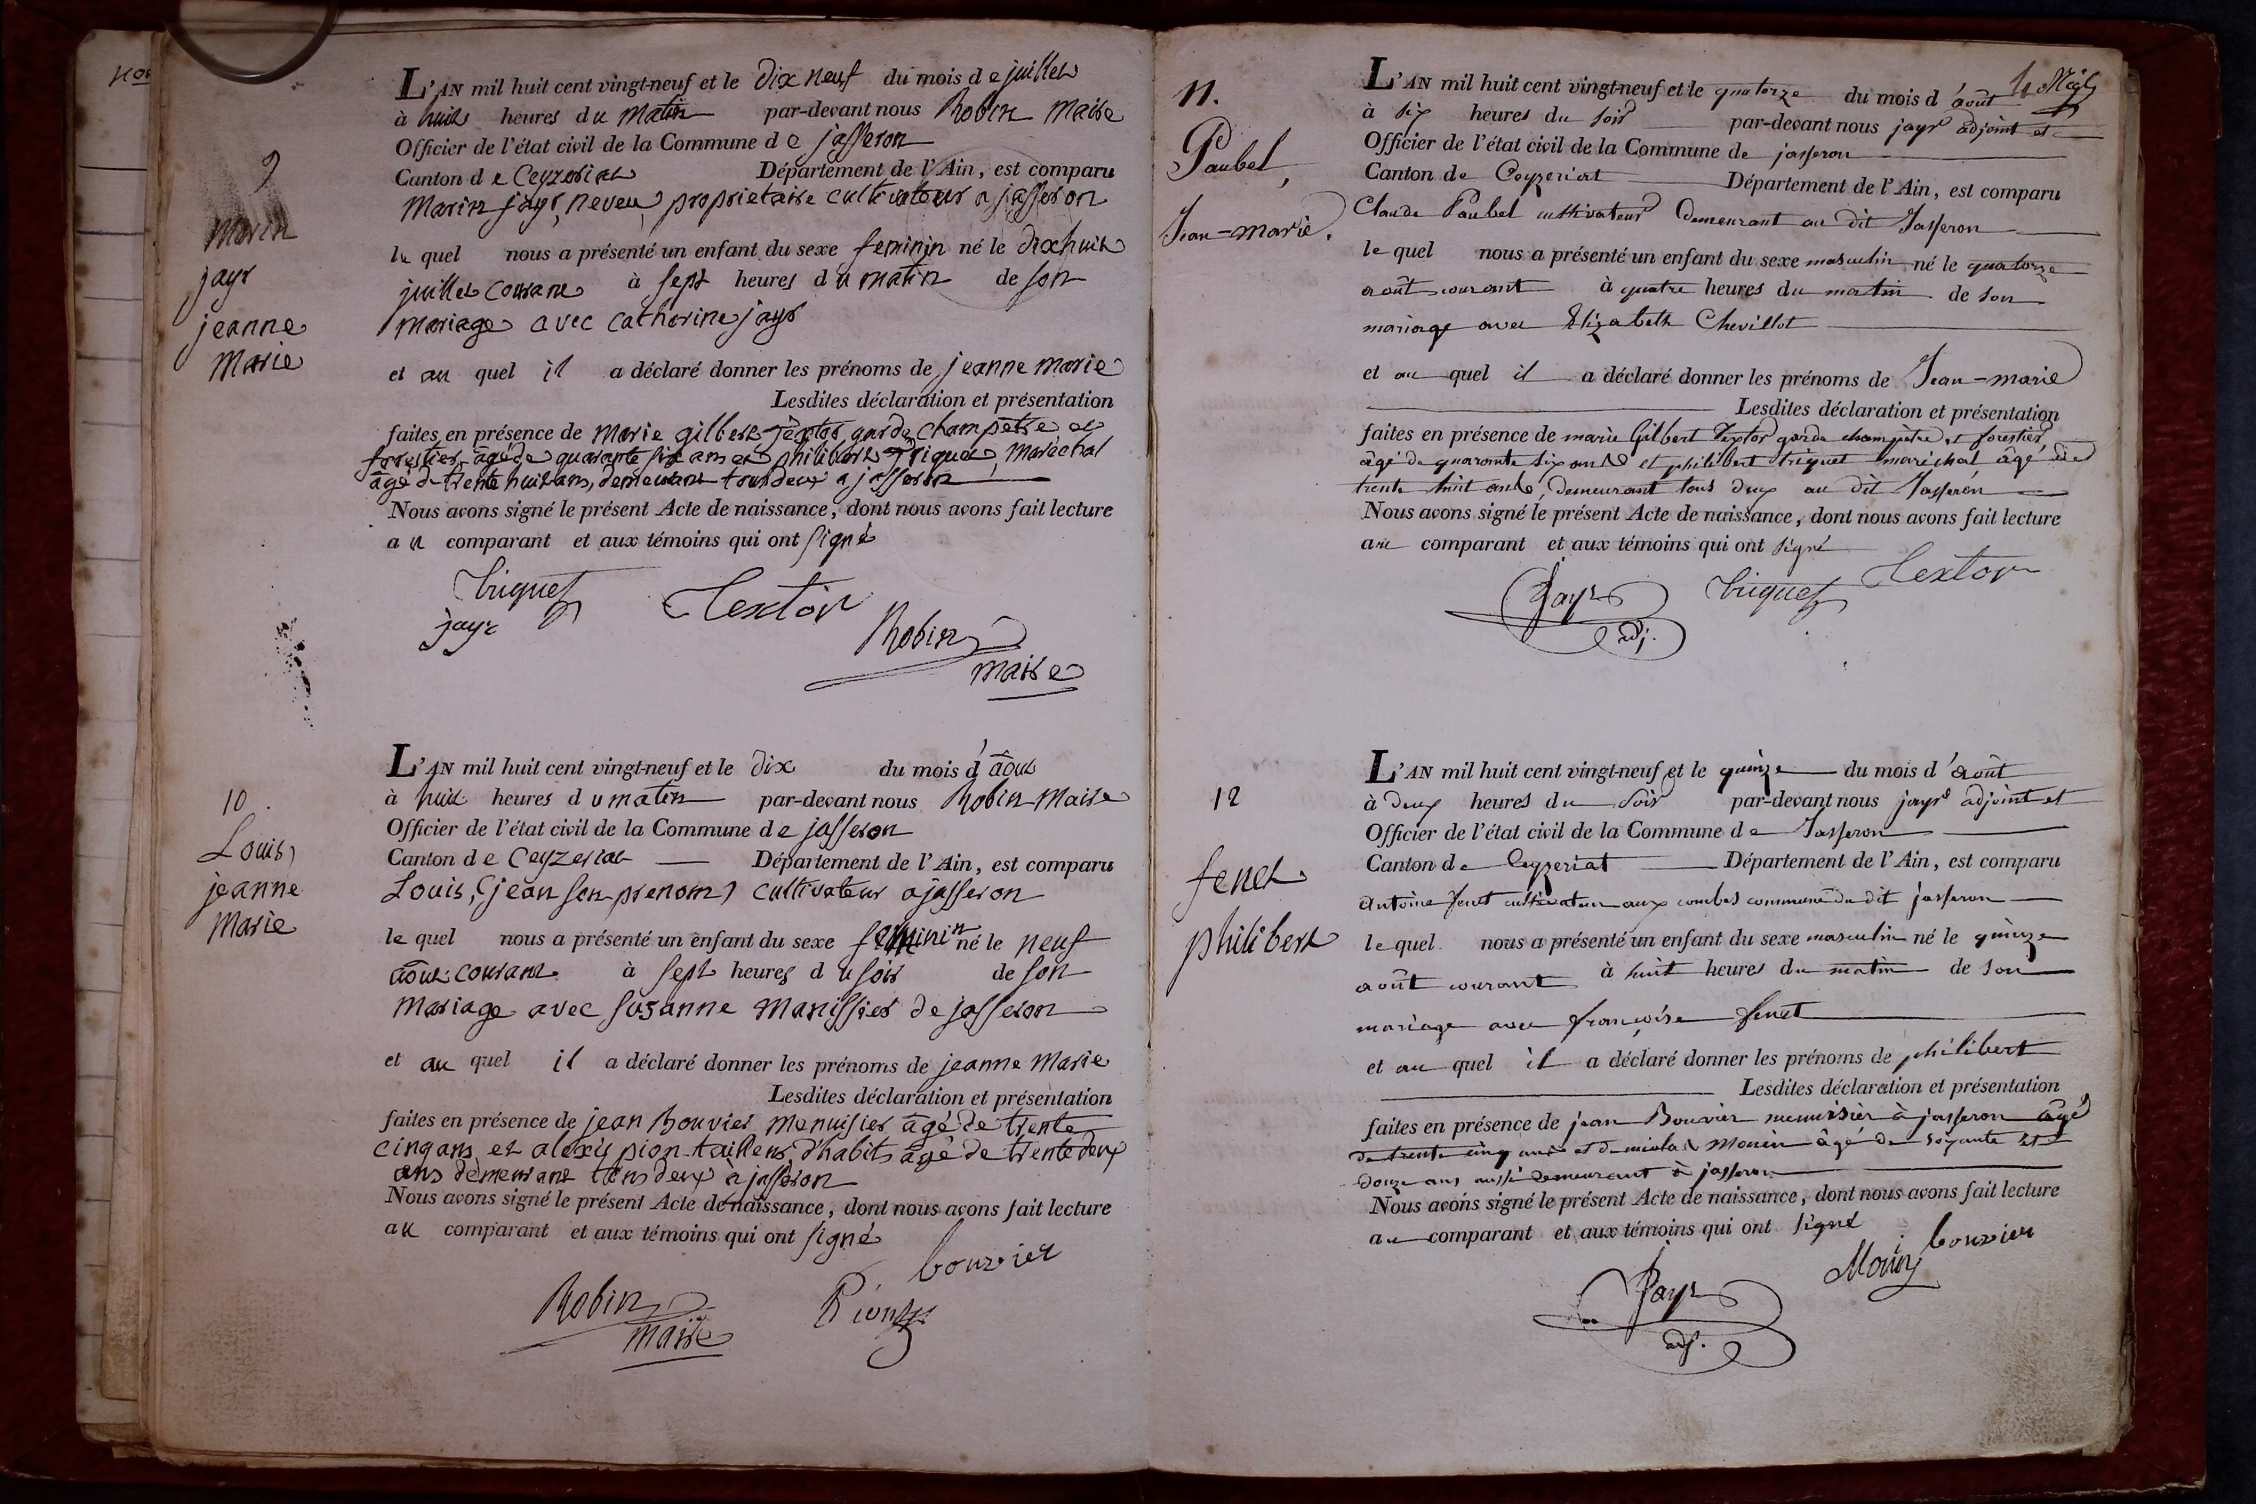 9
marin
jayr
jeanne
marie
L'AN mil huit cent vingt-neuf et le dix neuf du mois de juillet
à huit heures du matin par-devant nous Robin maire
Officier de l'état civil de la Commune de jasseron
Canton de Ceyzeriat Département de l'Ain, est comparu
marin jayr, neveu, proprietaire cultivateur a jasseron
le quel nous a présenté un enfant du sexe feminin né le dixhuit
juillet courant à sept heures du matin de son
mariage avec catherine jayr
et au quel il a déclaré donner les prénoms de jeanne marie
Lesdites déclaration et présentation
faites en présence de marie gilbert textor garde champetre et
forestier, âgé de quarante six ans et philibert Triquet, maréchal
âgé de trente huit ans, demeurant tous deux a jasseron
Nous avons signé le présent Acte de naissance, dont nous avons fait lecture
au comparant et aux témoins qui ont signé
Triquet Textor
jayr Robin
maire
10.
Louis,
jeanne
marie
L'AN mil huit cent vingt-neuf et le dix du mois d'août
à huit heures du matin par-devant nous Robin maire
Officier de l'état civil de la Commune de jasseron
Canton de Ceyzeriat Département de l'Ain, est comparu
Louis, (jean son prenom) cultivateur a jasseron
le quel nous a présenté un enfant du sexe feminin né le neuf
août courant à sept heures du soir de son
mariage avec suzanne manissier de jasseron
et au quel il a déclaré donner les prénoms de jeanne marie
Lesdites déclaration et présentation
faites en présence de jean Bouvier menuisier âgé de trente
cinq ans et alexis pion tailleur d'habits âgé de trente deux
ans demeurant tous deux à jasseron
Nous avons signé le présent Acte de naissance, dont nous avons fait lecture
au comparant et aux témoins qui ont signé
bouvier
Robin Pion
maire
11.
Paubel,
Jean-marie.
L'AN mil huit cent vingt-neuf et le quatorze du mois d'août
à six heures du soir par-devant nous jayr adjoint et
Officier de l'état civil de la Commune de jasseron
Canton de Ceyzeriat Département de l'Ain, est comparu
Claude Paubel cultivateur demeurant au dit Jasseron
le quel nous a présenté un enfant du sexe masculin né le quatorze
août courant à quatre heures du matin de son
mariage avec Elizabeth Chevillot
et au quel il a déclaré donner les prénoms de Jean-marie
Lesdites déclaration et présentation
faites en présence de marie Gilbert Textor garde champètre et forestier,
âgé de quarante six ans et philibert triquet maréchal âgé de
trente huit ans, demeurant tous deux au dit Jasseron
Nous avons signé le présent Acte de naissance, dont nous avons fait lecture
au comparant et aux témoins qui ont signé
Jayr Triquet Textor
adj.
12
fenet
philibert
L'AN mil huit cent vingt-neuf et le quinze du mois d'août
à deux heures du soir par-devant nous jayr adjoint et
Officier de l'état civil de la Commune de Jasseron
Canton de Ceyzeriat Département de l'Ain, est comparu
antoine fenet cultivateur aux combes commune du dit jasseron
le quel nous a présenté un enfant du sexe masculin né le quinze
août courant à huit heures du matin de son
mariage avec françoise fenet
et au quel il a déclaré donner les prénoms de philibert
Lesdites déclaration et présentation
faites en présence de jean Bouvier menuisier à jasseron âgé
de trente cinq ans et de nicolas Monin âgé de soixante et
douze ans aussi demeurant à jasseron
Nous avons signé le présent Acte de naissance, dont nous avons fait lecture
au comparant et aux témoins qui ont signé
bouvier
Monin
Jayr
adj.